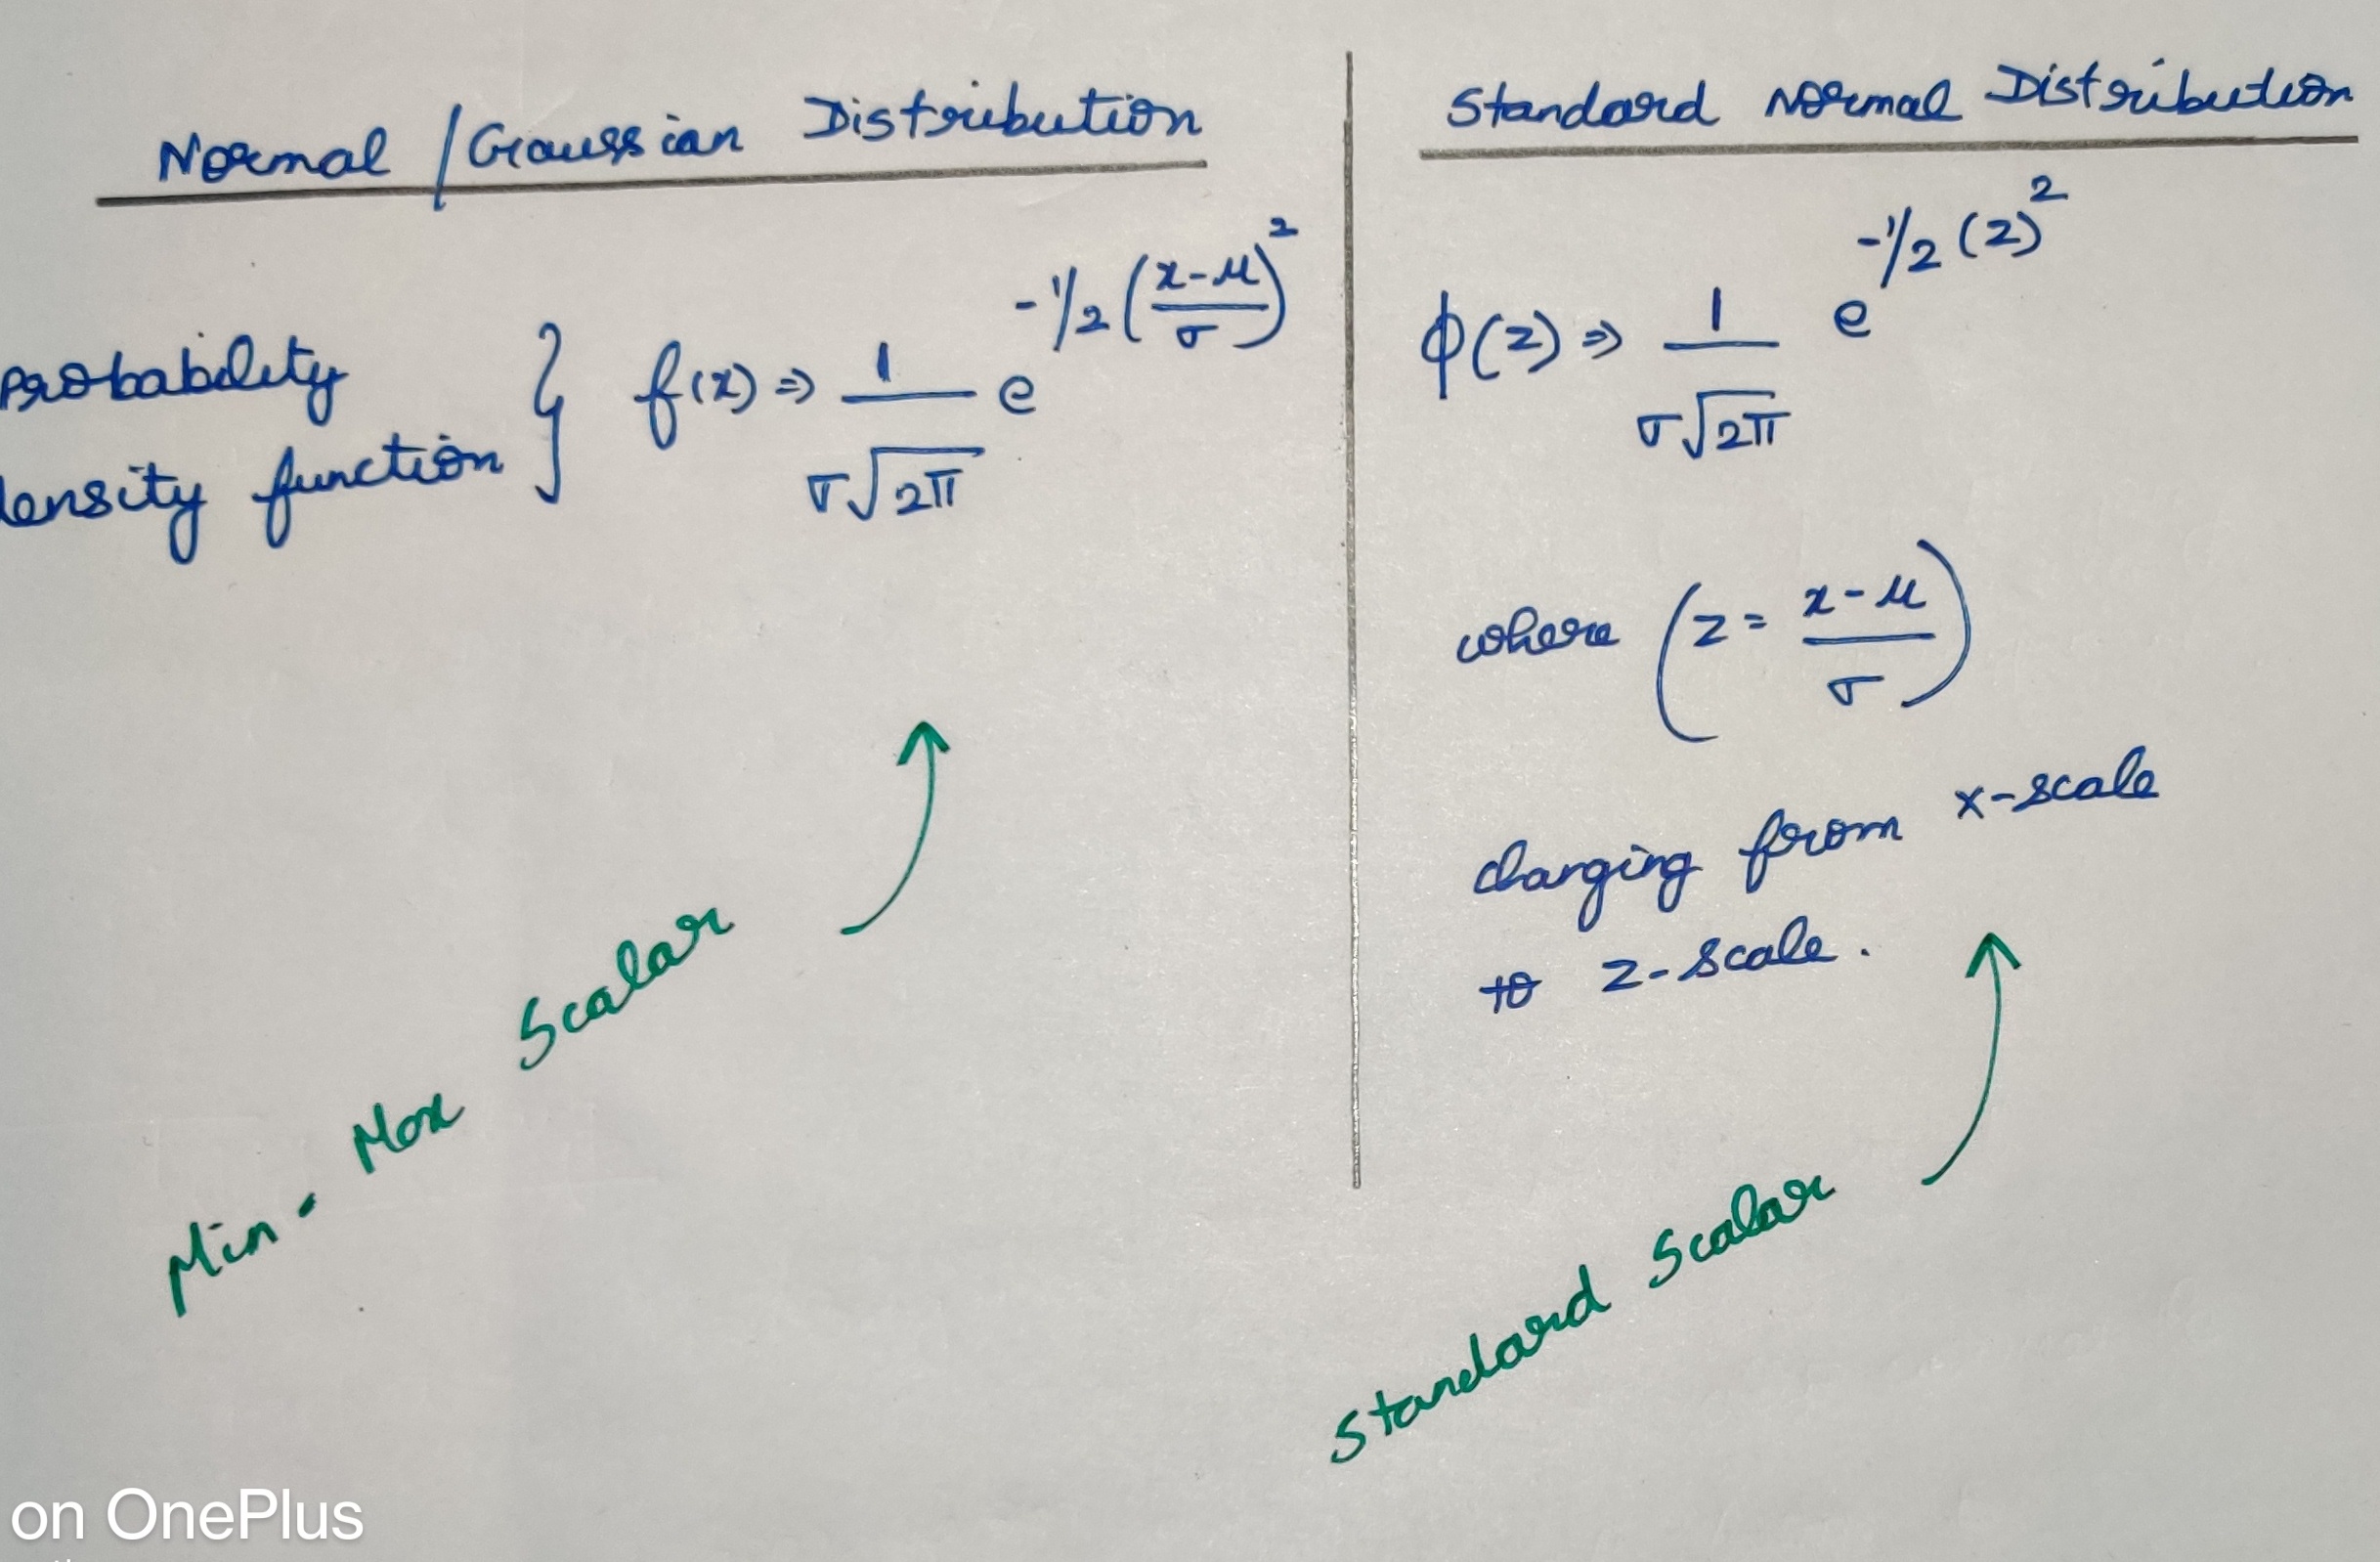 Normal / Gaussian Distribution
Probability
density function } f(x) ⇒ 1/(σ√2π) e^(-1/2 ((x-μ)/σ)^2)
Min - Max Scalar
Standard Normal Distribution
ϕ(z) ⇒ 1/(σ√2π) e^(-1/2 (z)^2)
where (z = (x-μ)/σ)
changing from x-scale
to z-scale.
Standard Scalar
on OnePlus